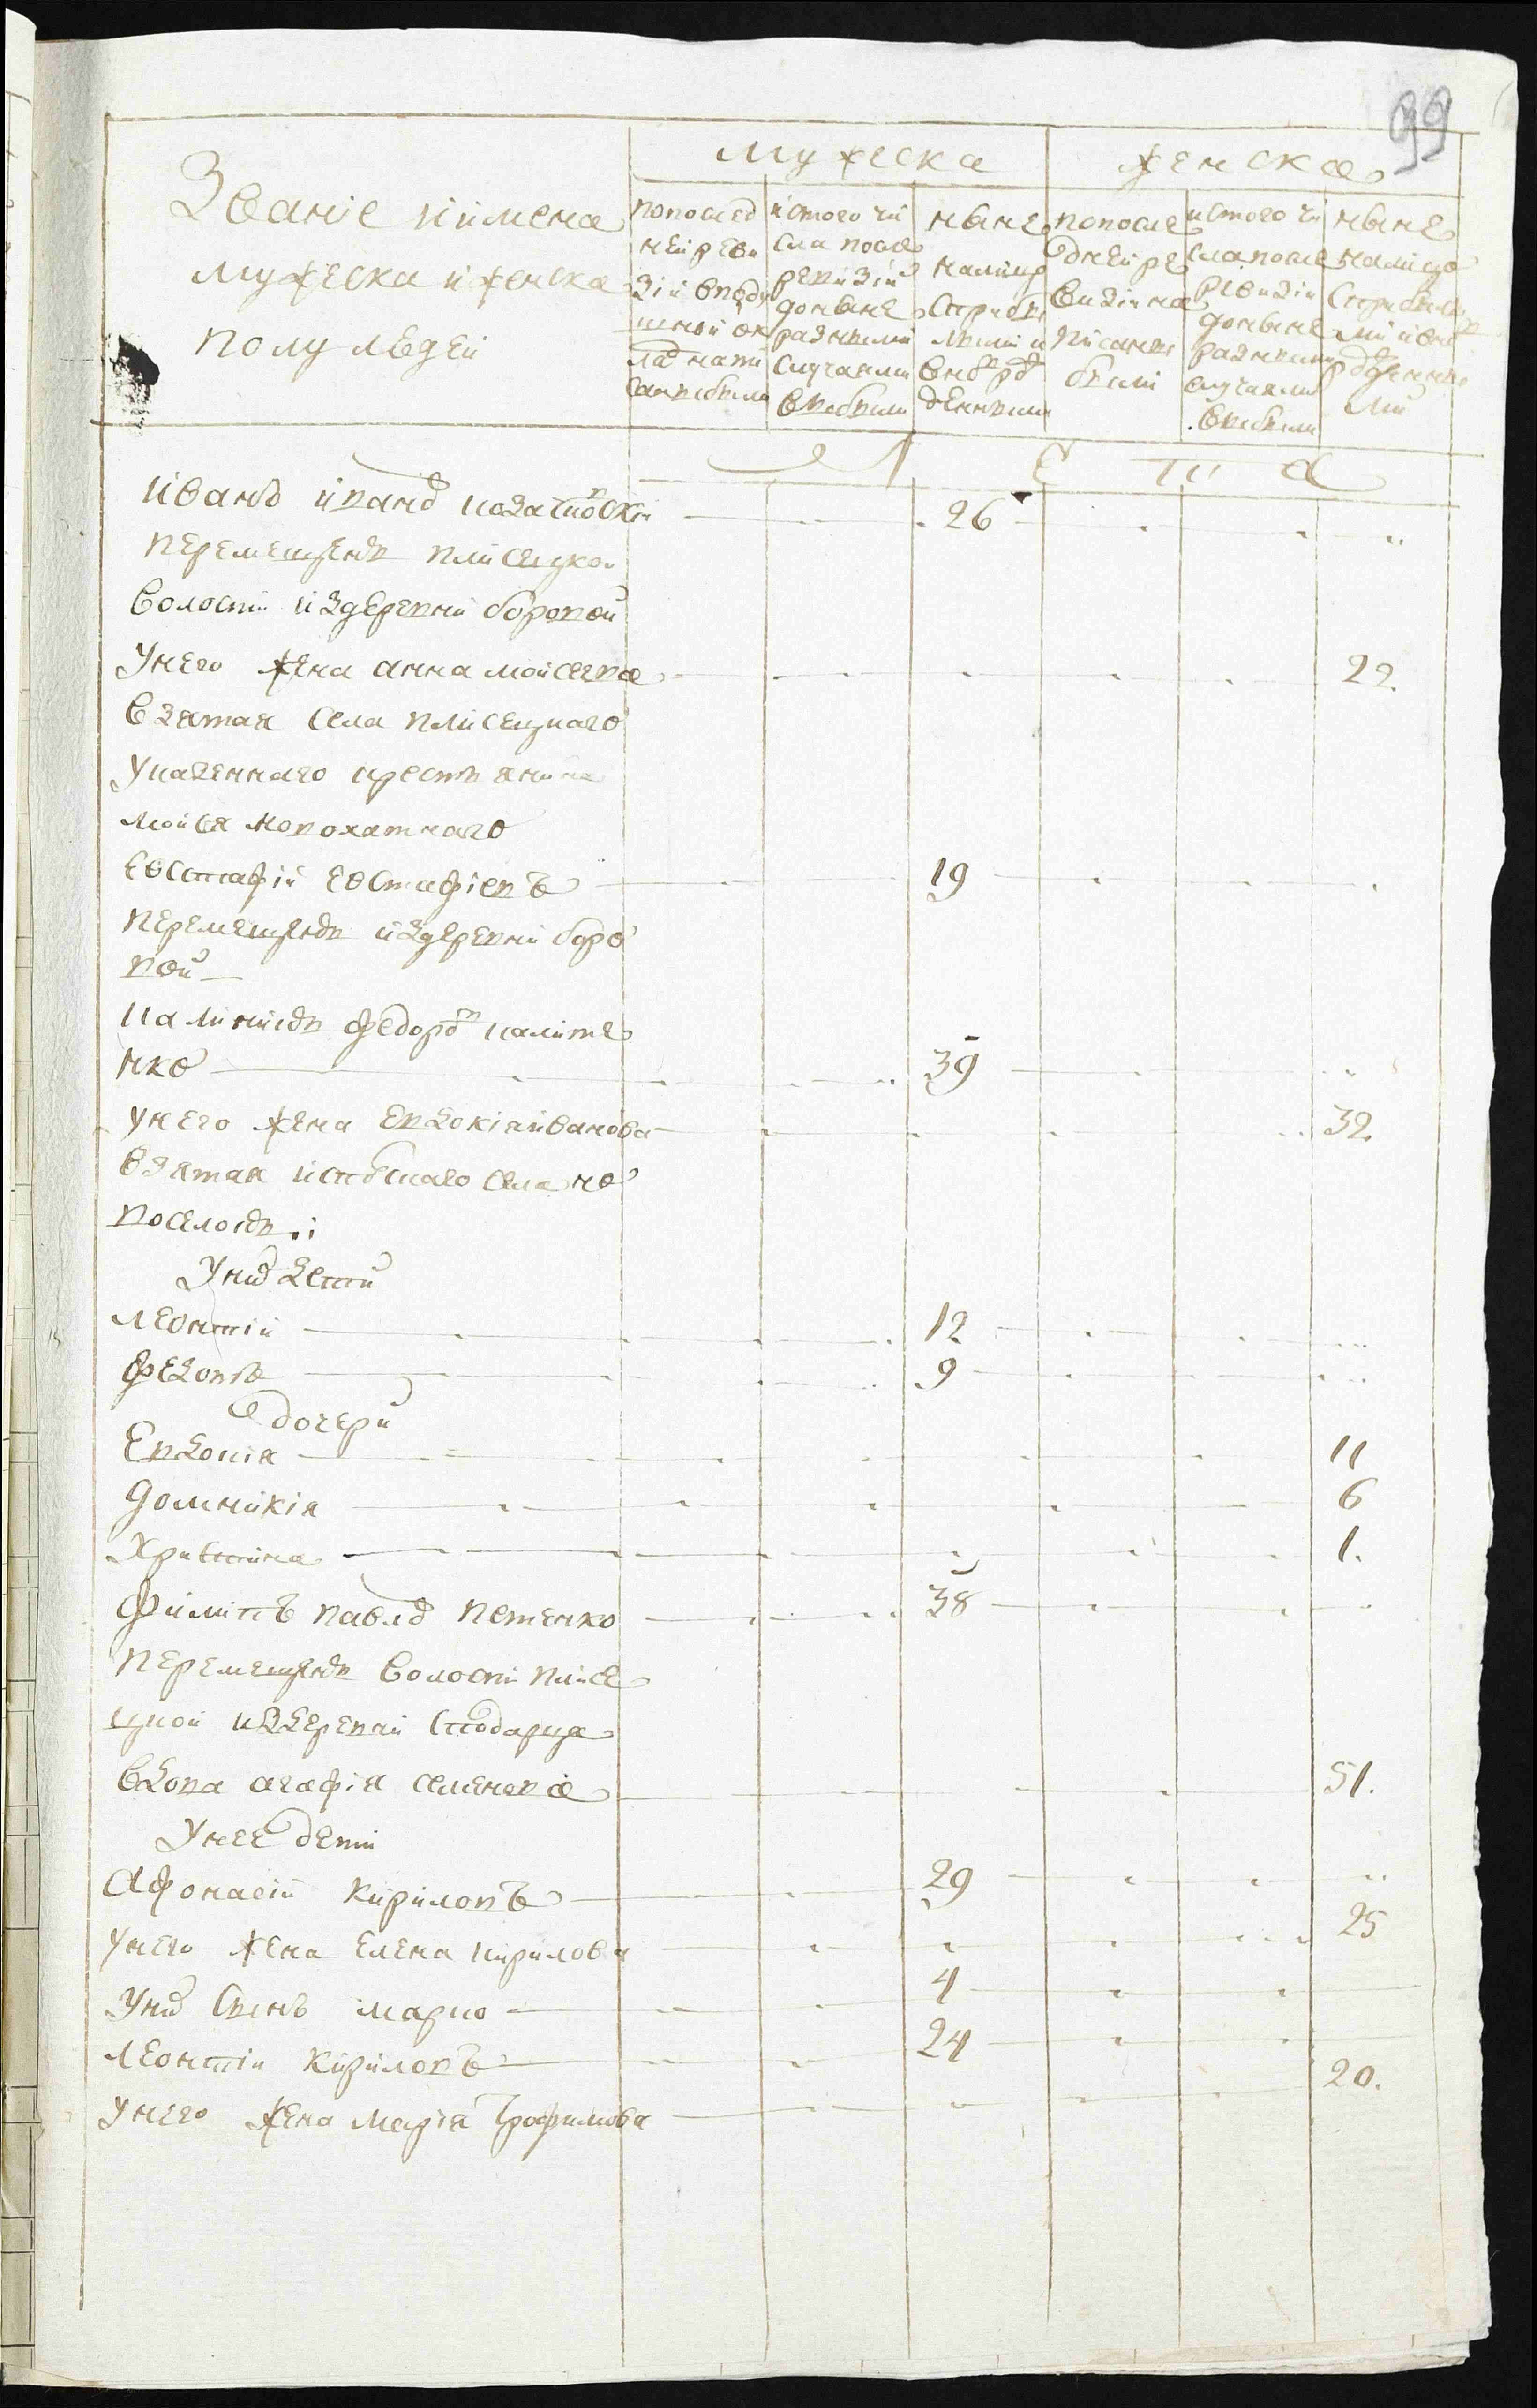 99
Званіе и имена
мужеска и женска
полу людей
мужеска
женска
попослед
ней реви
зіи вподу
шной ок
лад напи
саны были
истого чи
сла после
ревизіи
доныне
разными
случаями
выбыли
ныне
налицо
Сприбы
лыми и
вновь ро
жденными
попосле
дней ре
визіи на
писаны
были
истого чи
сла после
ревизіи
доныне
разными
случаями
выбыли
ныне
налицо
Сприбылы
ми и вно
рожденны
ми
Л Е Т А
Иванъ Ивано Козаковскій 26
перемещенъ Плисецкой
волости издеревни боровой
Унего жена анна мойсеева 22.
взятая села плисецкаго
указеннаго крестьянина
мойсея
Евстафій Евстафіевъ 19
перемещенъ издеревни боро
вой
Калиникъ федоро калите
нко 39
унего жена Евдокія иванова 32.
взятая села но
воселокъ
Уних дети
Леонтій 12
федотъ 9
дочери
Евдокія 11
домникія 6
Христина 1.
филипъ павло петенко 38
перемещенъ волости плисе
цкой издеревни
вдова агафія семенова 51.
Унее дети
Афонасій Кириловъ 29
унего жена Елена кирилова 25
Уних Сынъ марко 4
Леонтій Кириловъ 24
Унего жена марія трофимова 20.